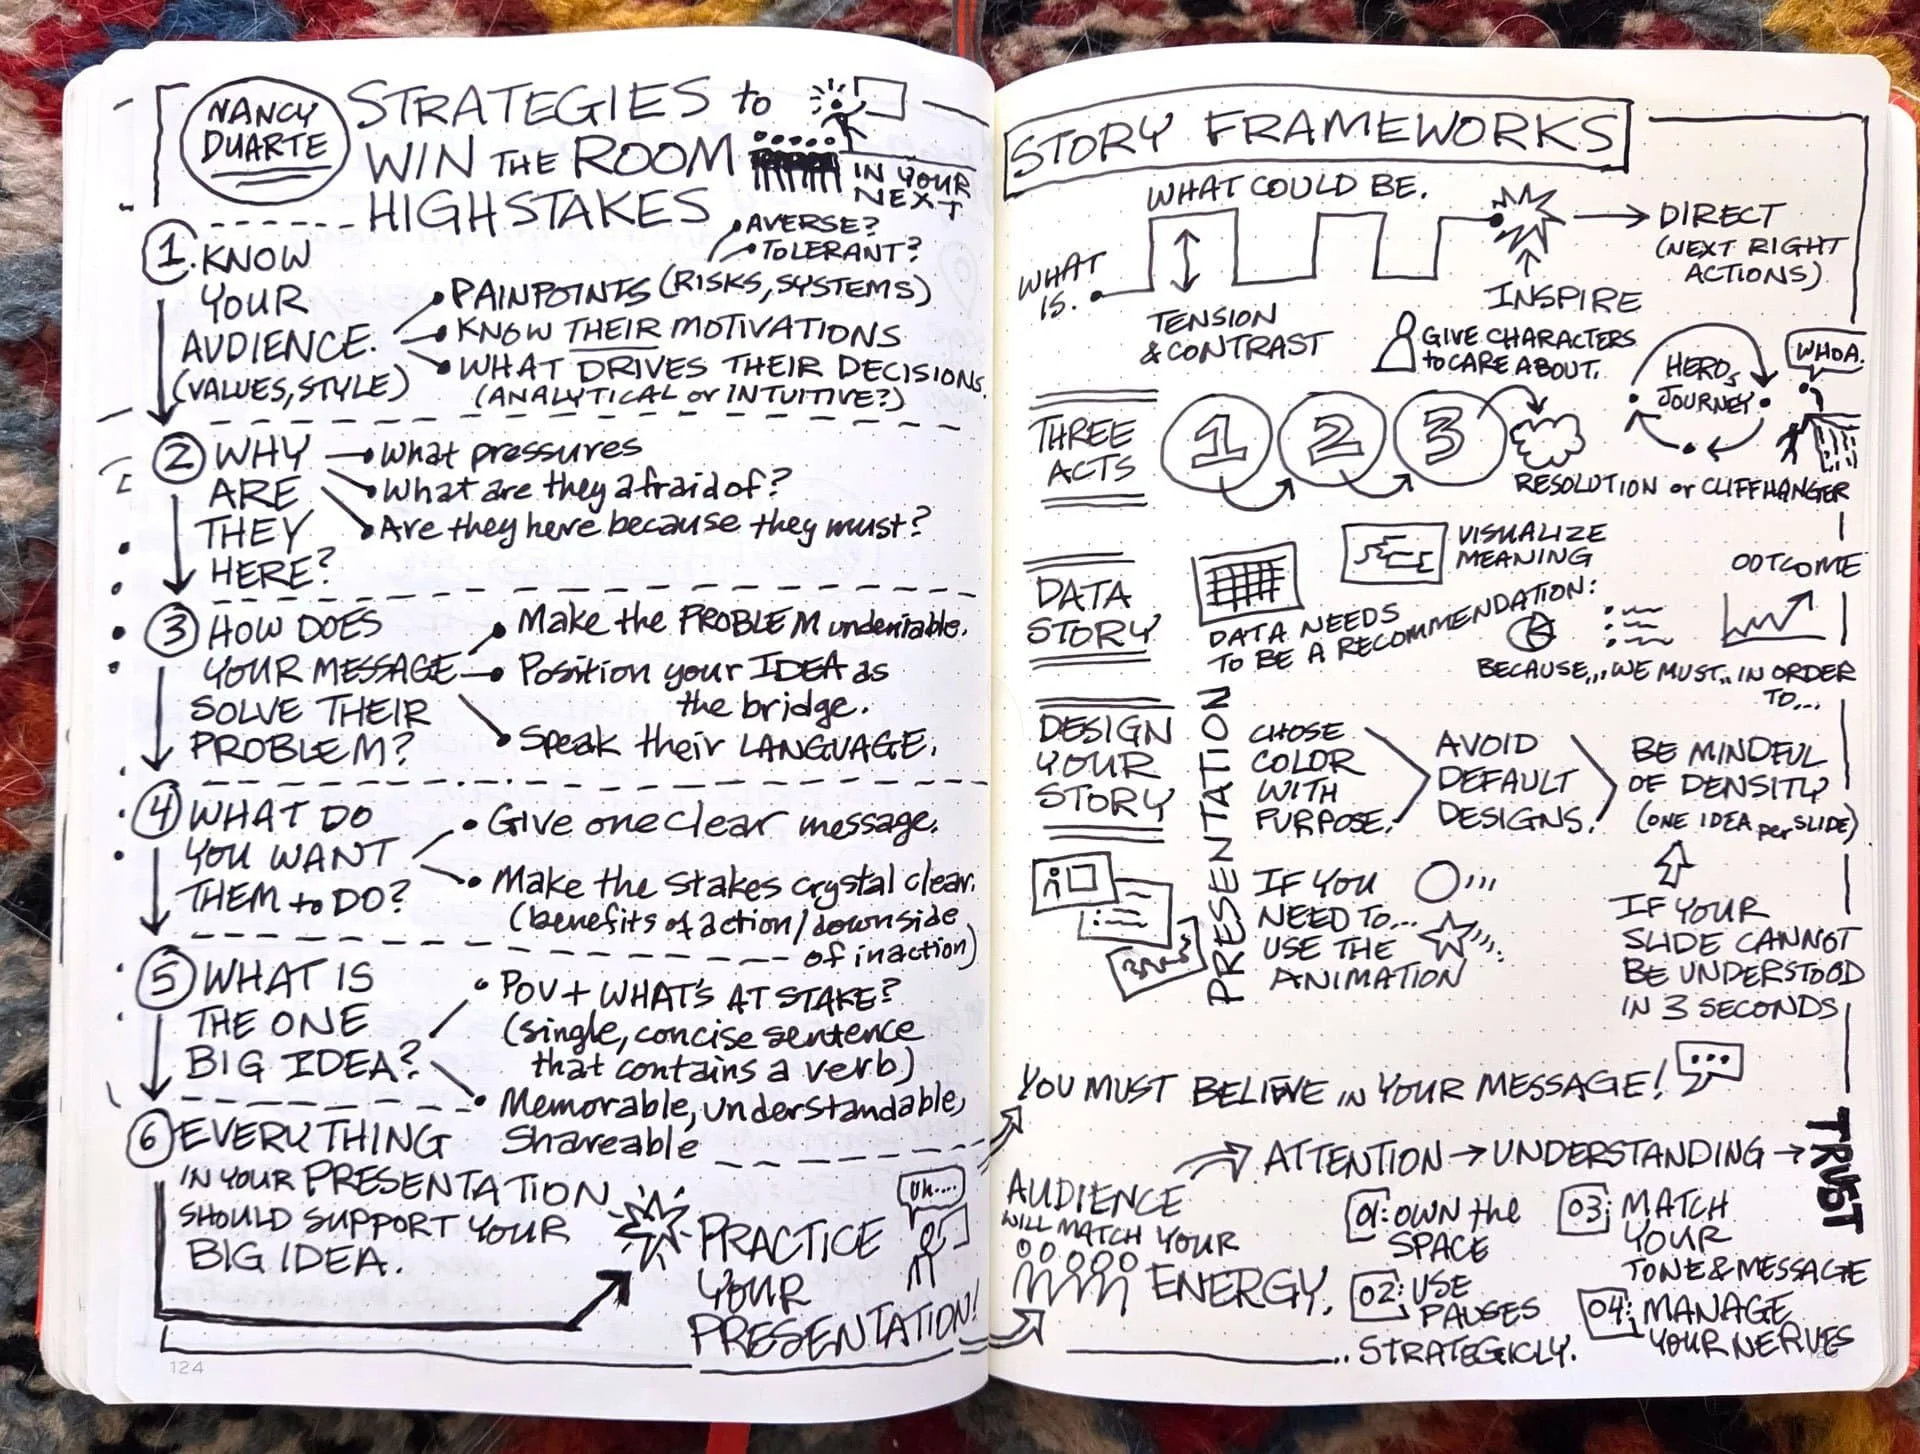 NANCY
DUARTE
STRATEGIES to
WIN THE ROOM
IN YOUR
NEXT
HIGH STAKES
1. KNOW
YOUR
AUDIENCE.
(VALUES, STYLE)
• AVERSE?
• TOLERANT?
• PAINPOINTS (RISKS, SYSTEMS)
• KNOW THEIR MOTIVATIONS
• WHAT DRIVES THEIR DECISIONS
(ANALYTICAL or INTUITIVE?)
2 WHY
ARE
THEY
HERE?
• What pressures
• What are they afraid of?
• Are they here because they must?
3 HOW DOES
YOUR MESSAGE
SOLVE THEIR
PROBLEM?
• Make the PROBLEM undeniable.
• Position your IDEA as
the bridge.
• Speak their LANGUAGE.
4 WHAT DO
YOU WANT
THEM to DO?
• Give one clear message.
• Make the stakes crystal clear.
(benefits of action/downside
of inaction)
5 WHAT IS
THE ONE
BIG IDEA?
• POV + WHAT'S AT STAKE?
(single, concise sentence
that contains a verb)
• Memorable, understandable,
shareable
6 EVERYTHING
IN YOUR PRESENTATION
SHOULD SUPPORT YOUR
BIG IDEA.
UH....
PRACTICE
YOUR
PRESENTATION!
124
STORY FRAMEWORKS
WHAT COULD BE.
WHAT
IS.
TENSION
& CONTRAST
INSPIRE
DIRECT
(NEXT RIGHT
ACTIONS)
GIVE CHARACTERS
to CARE ABOUT.
HEROS
JOURNEY
WHOA.
THREE
ACTS
1 2 3
RESOLUTION or CLIFFHANGER
DATA
STORY
VISUALIZE
MEANING
DATA NEEDS
TO BE A RECOMMENDATION:
OUTCOME
BECAUSE... WE MUST.. IN ORDER
TO...
DESIGN
YOUR
STORY
PRESENTATION
CHOSE
COLOR
WITH
PURPOSE.
AVOID
DEFAULT
DESIGNS.
BE MINDFUL
OF DENSITY
(ONE IDEA per SLIDE)
IF YOU
NEED TO...
USE THE
ANIMATION
IF YOUR
SLIDE CANNOT
BE UNDERSTOOD
IN 3 SECONDS
YOU MUST BELIEVE IN YOUR MESSAGE!
AUDIENCE
WILL MATCH YOUR
ENERGY.
ATTENTION → UNDERSTANDING →
TRUST
01: OWN the
SPACE
02: USE
PAUSES
STRATEGICLY.
03: MATCH
YOUR
TONE & MESSAGE
04: MANAGE
YOUR NERVES